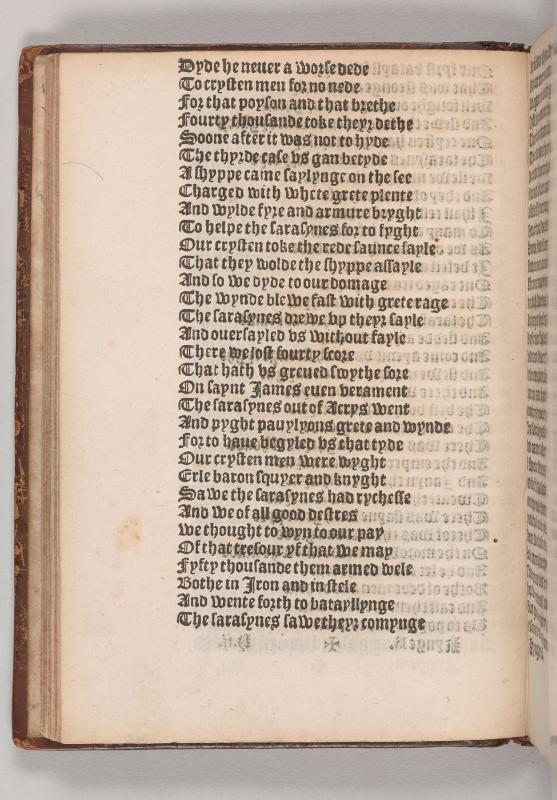 Dyde he neuer a worse dede
To crysten men for no nede
For that poyson and that brethe
Fourty thousande toke theyr dethe
Soone after it was not to hyde
The thyrde case vs gan betyde
A shyppe came saylynge on the see
Charged with whete grete plente
And wylde fyre and armure bryght
To helpe the sarasynes for to fyght
Our crysten toke the rede saunce fayle
That they wolde the shyppe assayle
And so we dyde to our domage
The wynde blewe fast with grete rage
The sarasynes drewe vp theyr sayle
And ouersayled vs without fayle
There we lost fourty score
That hath vs greued swythe sore
On saynt James euen verament
The sarasynes out of Acrys went
And pyght pauylyons grete and wynde
For to haue begyled vs that tyde
Our crysten men were wyght
Erle baron squyer and knyght
Sawe the sarasynes had rychesse
And we of all good destres
we thought to wyn to our pay
Of that tresour yf that we may
Fyfty thousande them armed wele
Bothe in Iron and in stele
And wente forth to batayllynge
The sarasynes sawe theyr comynge